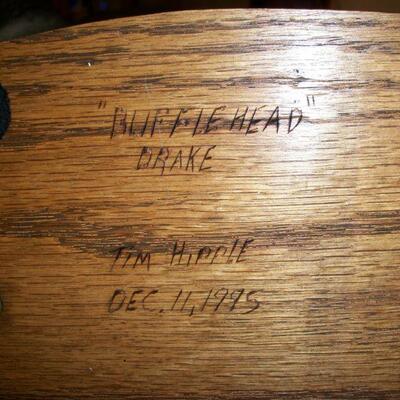 "BUFFLE HEAD"
DRAKE
TIM HIPPLE
DEC. 11, 1995